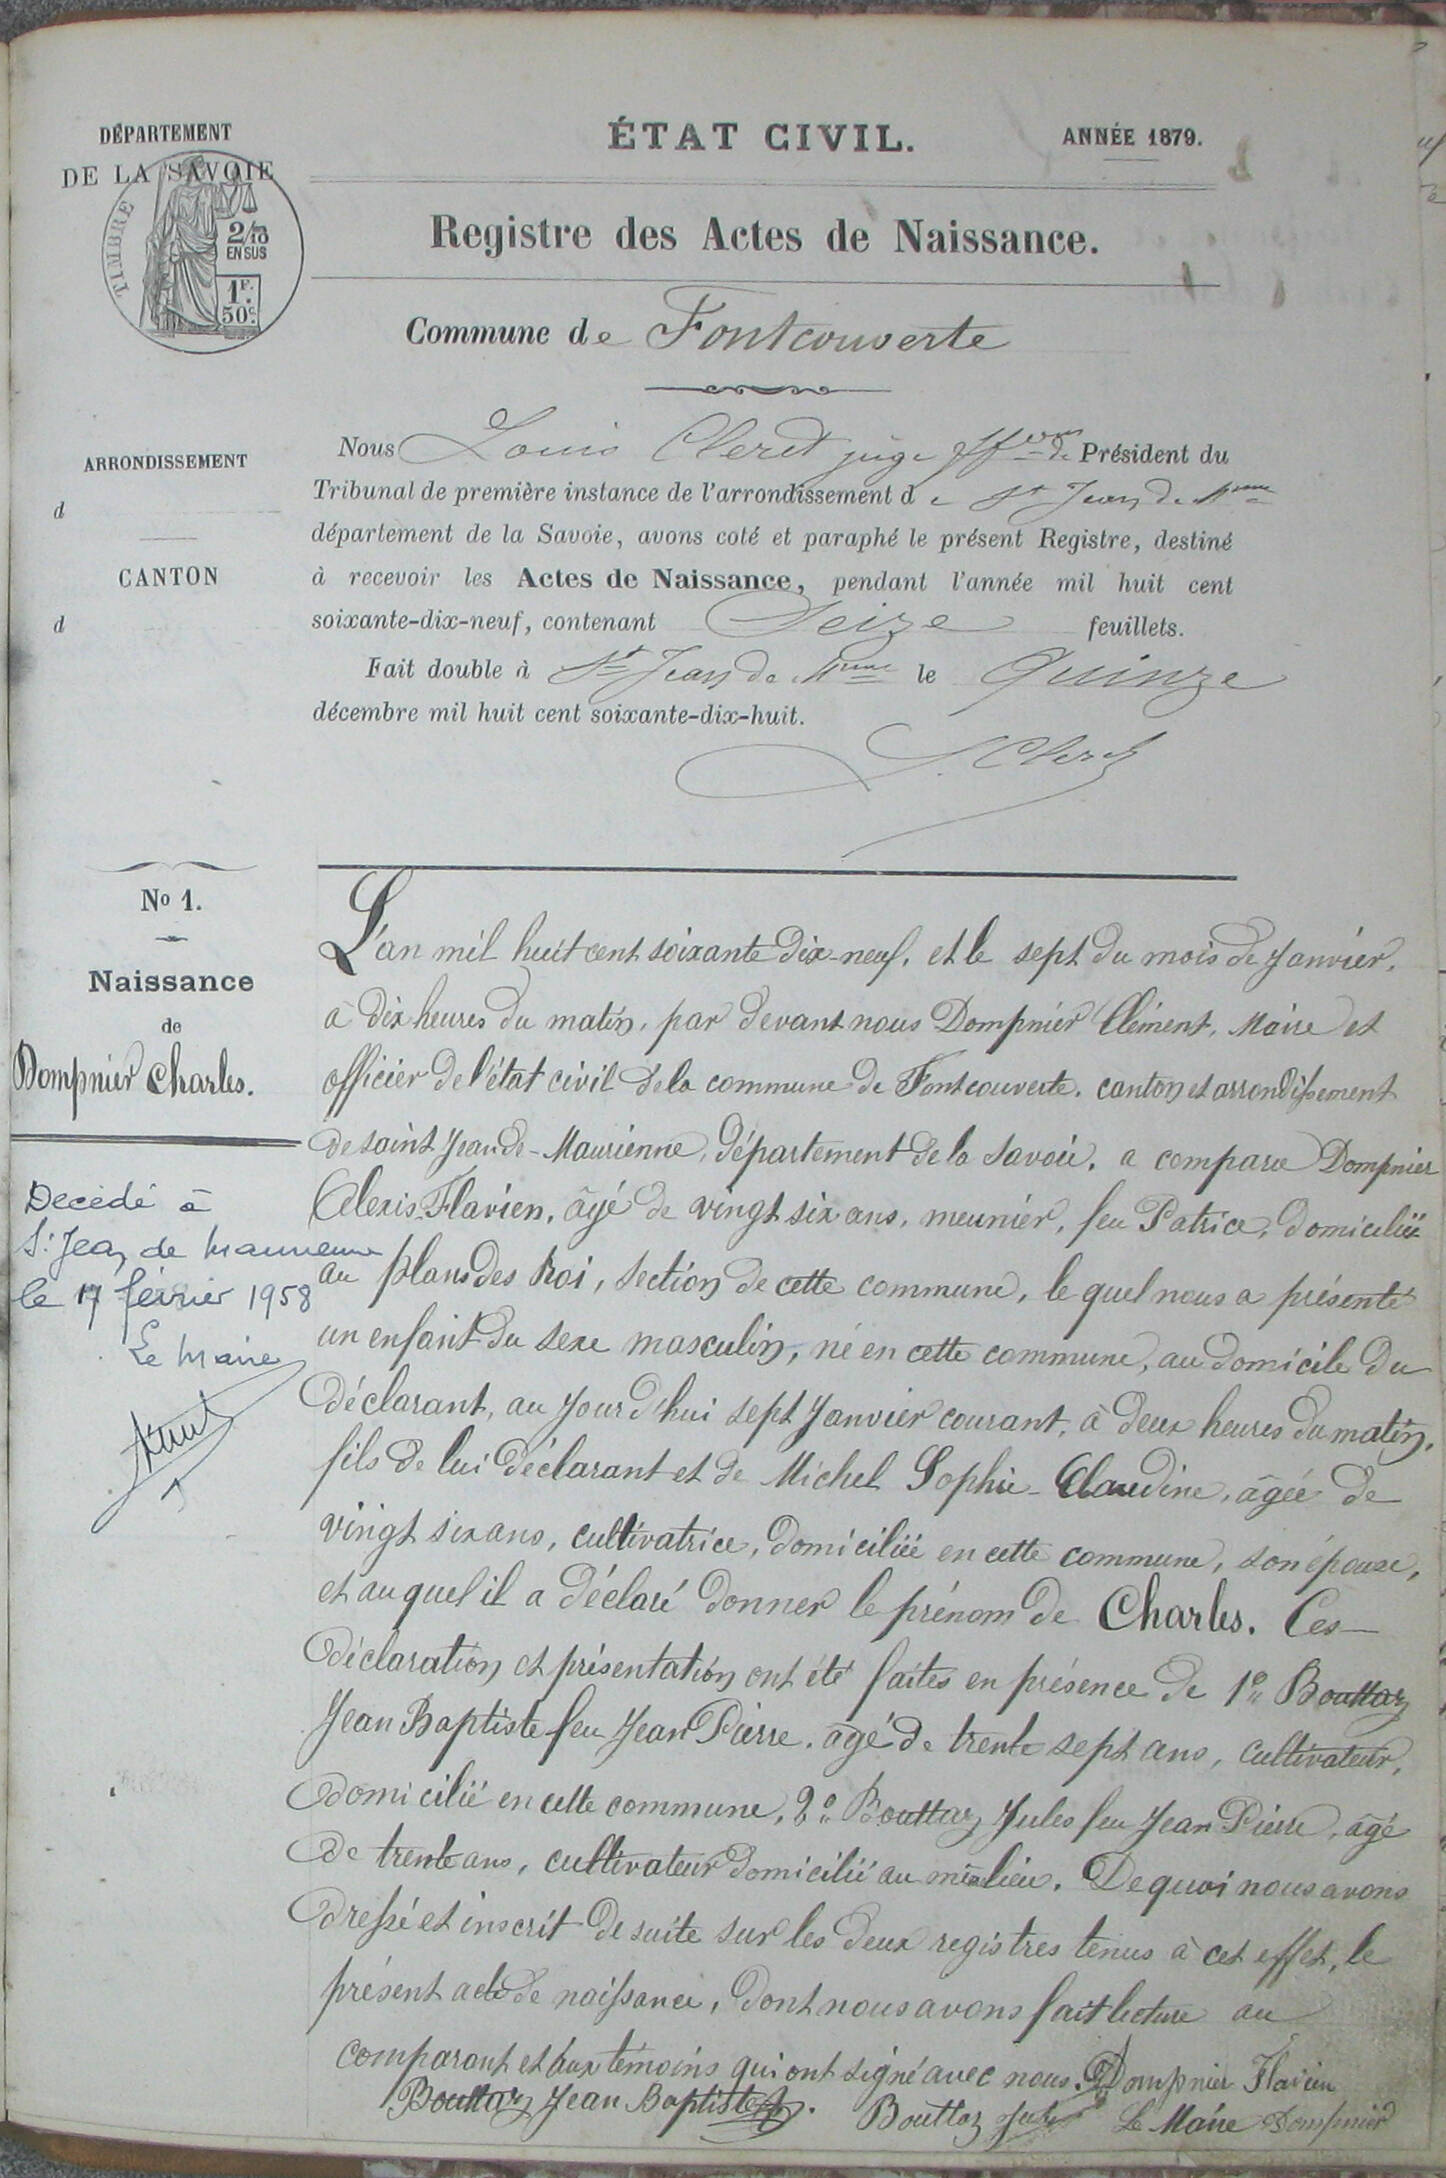 DÉPARTEMENT
DE LA SAVOIE
TIMBRE
2/10
EN SUS
1F.
50c.
ÉTAT CIVIL.
ANNÉE 1879.
Registre des Actes de Naissance.
Commune de Fontcouverte
ARRONDISSEMENT
d
CANTON
d
Nous Louis Cleret juge ffons de Président du
Tribunal de première instance de l'arrondissement de St Jean de Mnne
département de la Savoie, avons coté et paraphé le présent Registre, destiné
à recevoir les Actes de Naissance, pendant l'année mil huit cent
soixante-dix-neuf, contenant Seize feuillets.
Fait double à St Jean de Mnne le Quinze
décembre mil huit cent soixante-dix-huit.
L. Cleret
No 1.
Naissance
de
Dompnier Charles.
Decédé à
St Jean de Maurienne
le 17 février 1958
Le Maire
L'an mil huit cent soixante dix-neuf, et le sept du mois de Janvier,
à dix heures du matin, par devant nous Dompnier Clément, Maire et
officier de l'état civil de la commune de Fontcouverte, canton et arrondissement
de saint Jean de-Maurienne, département de la Savoie, a comparu Dompnier
Alexis-Flavien, âgé de vingt six ans, meunier, feu Patrice, domicilié
au plan des Roi, section de cette commune, le quel nous a présenté
un enfant du sexe masculin, né en cette commune, au domicile du
déclarant, au jour d'hui sept Janvier courant, à deux heures du matin,
fils de lui déclarant et de Michel Sophie-Claudine, âgée de
vingt six ans, cultivatrice, domiciliée en cette commune, son épouse,
et au quel il a déclaré donner le prénom de Charles. Ces
déclaration et présentation ont été faites en présence de 1° Bouttaz
Jean Baptiste feu Jean Pierre, âgé de trente sept ans, cultivateur,
domicilié en cette commune, 2° Bouttaz Jules feu Jean Pierre, âgé
de trente ans, cultivateur domicilié au même lieu. De quoi nous avons
dressé et inscrit de suite sur les deux registres tenus à cet effet, le
présent acte de naissance, dont nous avons fait lecture au
comparant et aux témoins qui ont signé avec nous. Dompnier Flavien
Bouttaz Jean Baptiste. Bouttaz Jules Le Maire Dompnier